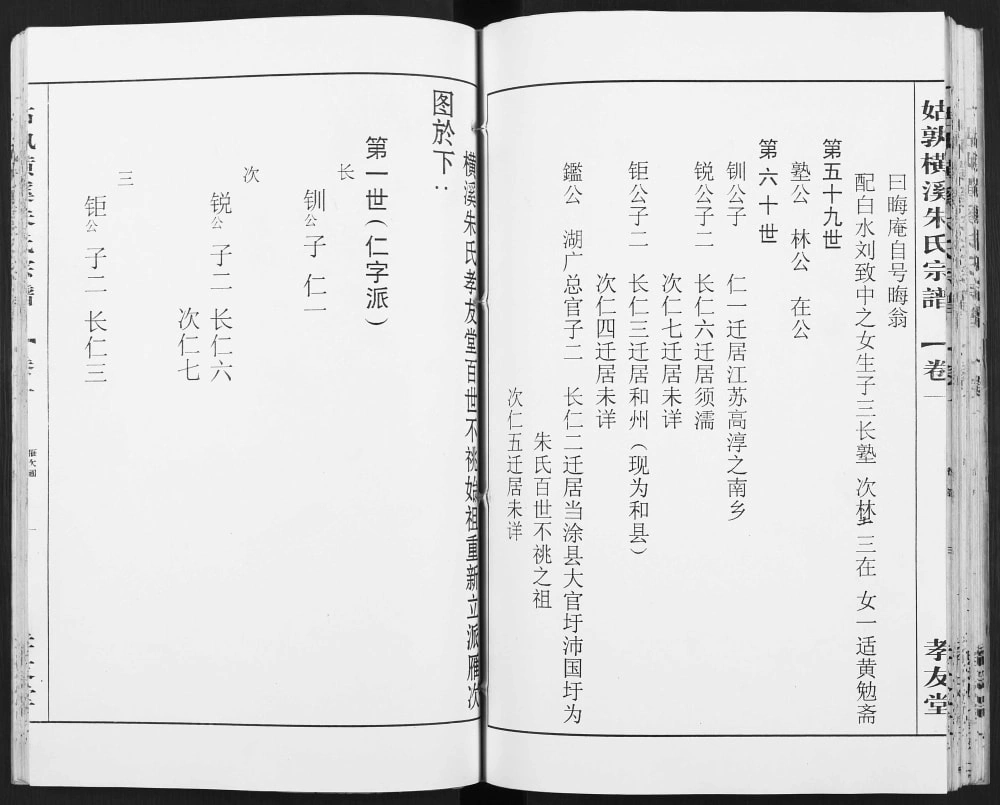 姑孰横溪朱氏宗譜
卷一
孝友堂
曰晦庵自号晦翁
配白水刘致中之女生子三长塾 次林 三在 女一适黄勉斋
第五十九世
塾公 林公 在公
第六十世
钏公子 仁一迁居江苏高淳之南乡
锐公子二 长仁六迁居须濡
次仁七迁居未详
钜公子二 长仁三迁居和州（现为和县）
次仁四迁居未详
鑑公 湖广总官子二 长仁二迁居当涂县大官圩沛国圩为
朱氏百世不祧之祖
次仁五迁居未详
横溪朱氏孝友堂百世不祧始祖重新立派雁次
图於下：
第一世（仁字派）
长
钏公 子 仁一
次
锐公 子二 长仁六
次仁七
三
钜公 子二 长仁三